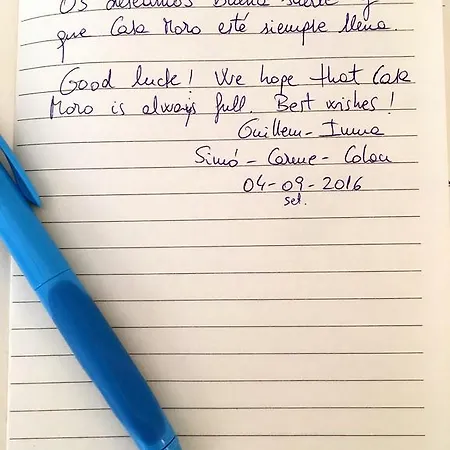 Os deseamos buena suerte y
que Casa Moro esté siempre llena.
Good luck! We hope that Casa
Moro is always full. Best wishes!
Guillem - Imma
Simó - Carme - Colau
04-09-2016
set.